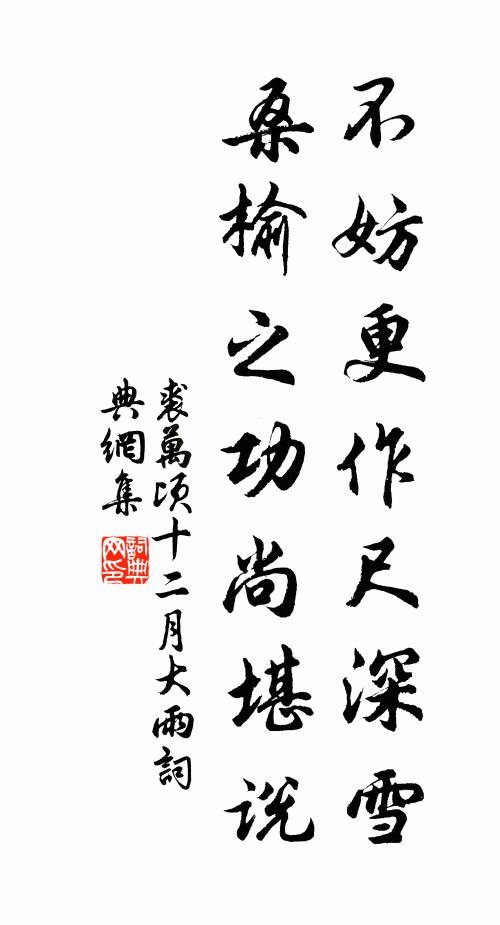 不妨更作尺深雪
桑榆之功尚堪説
裘萬頃十二月大雨詞
典網集
詞典
网印